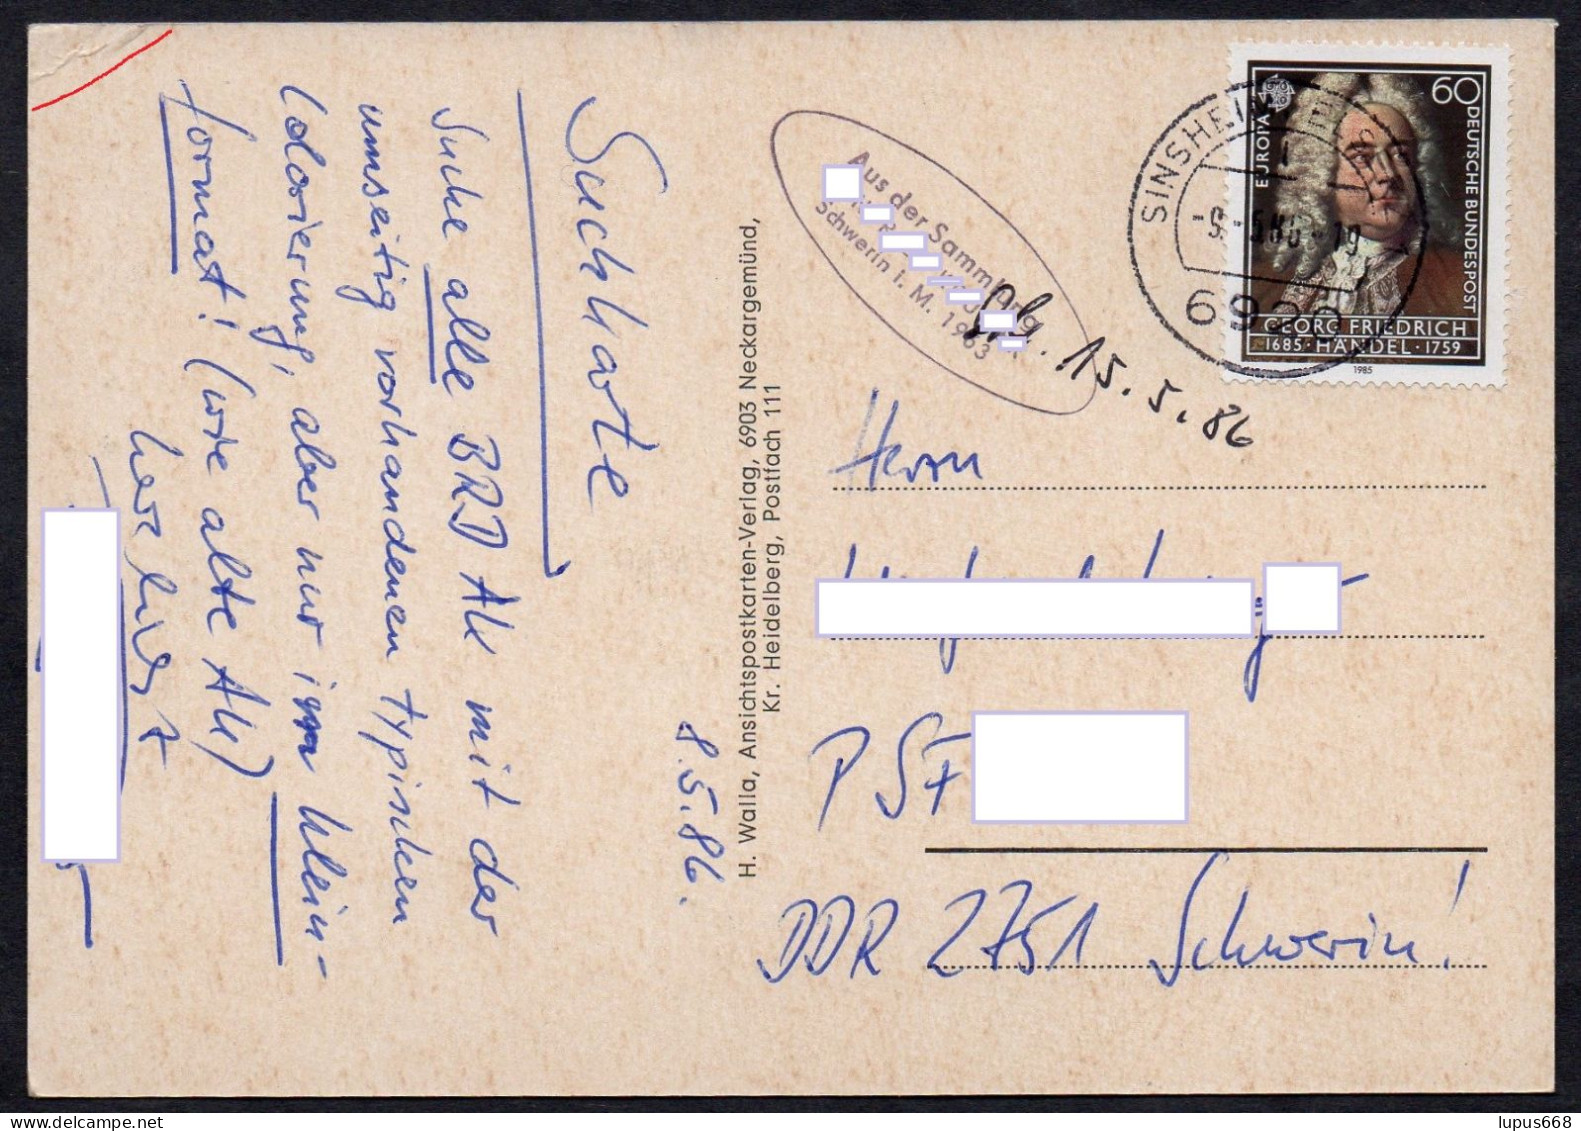 Suchkarte
Suche alle BRD AK mit der
umseitig vorhandenen typischen
Colorierung, aber nur im Klein-
format! (wie alte AK)
herzlichst
8.5.86.
H. Walla, Ansichtspostkarten-Verlag, 6903 Neckargemünd,
Kr. Heidelberg, Postfach 111
Aus der Sammlung
Schwerin i. M. 1963
15.5.86
SINSHEIM
-9.-5.86-19
6920
EUROPA
60
DEUTSCHE BUNDESPOST
GEORG FRIEDRICH
1685 · HÄNDEL · 1759
1985
Herrn
PSF
DDR 2751 Schwerin!
lupus668